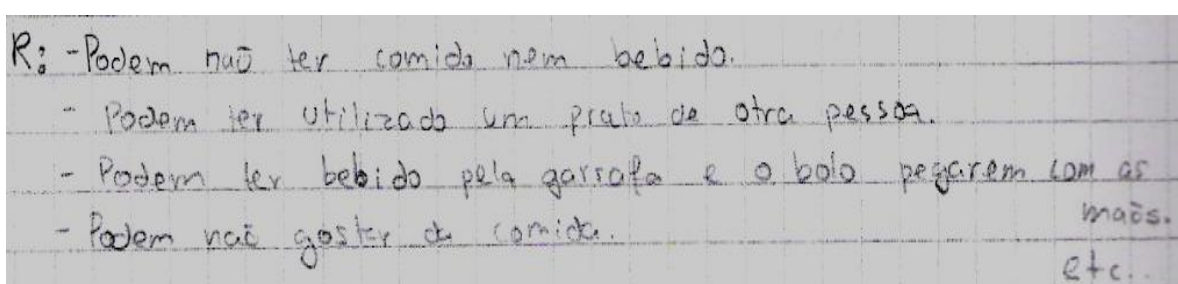 R: - Podem naõ ter comido nem bebido.
- Podem ter utilizado um prato de otra pessoa.
- Podem ter bebido pela garrafa e o bolo pegarem com as
maõs.
- Podem naõ gostar da comida.
etc..